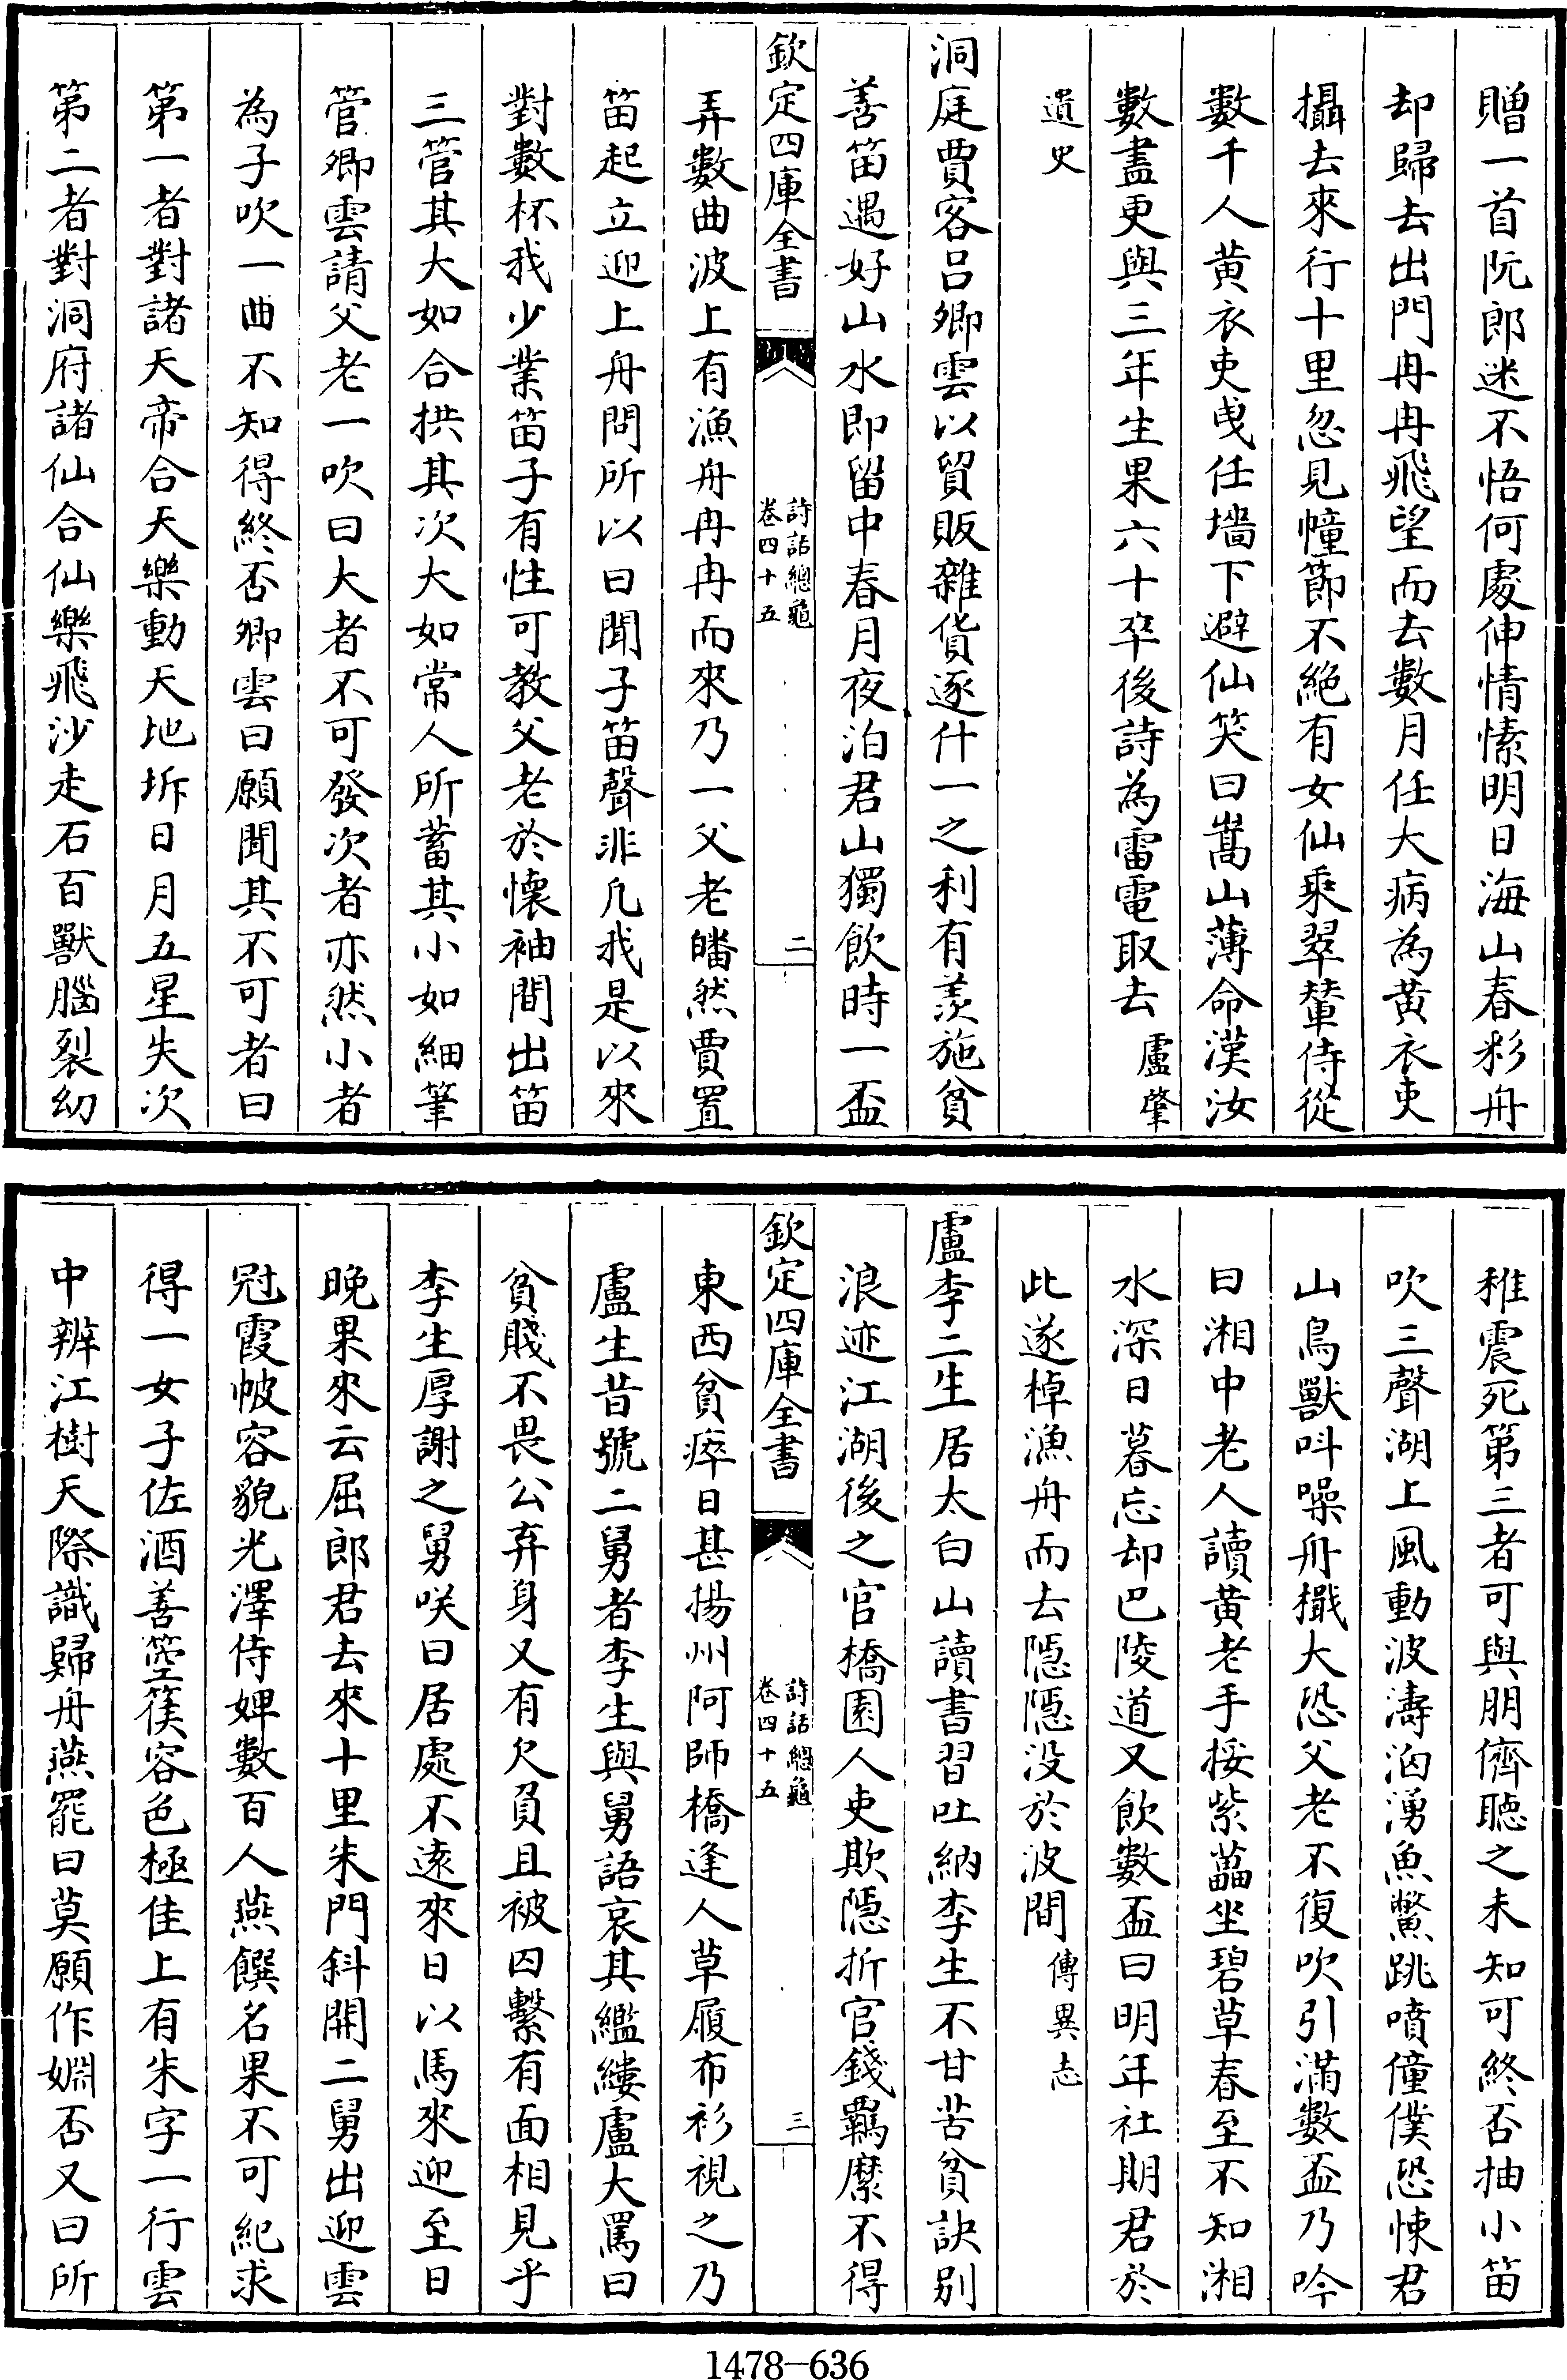 贈一首阮郎迷不悟何處伸情愫明日海山春彩舟
却歸去出門冉冉飛望而去數月任大病為黃衣吏
攝去來行十里忽見幢節不絕有女仙乘翠輦侍從
數千人黃衣吏曵任墻下避仙笑曰嵩山薄命漢汝
數盡更與三年生果六十卒後詩為雷電取去盧肇
遺史
洞庭賈客吕卿雲以貿販雜貨逐什一之利有羡施貧
善笛遇好山水即留中春月夜泊君山獨飲時一盃
欽定四庫全書
詩話總龜
卷四十五
二
弄數曲波上有漁舟冉冉而來乃一父老皤然賈置
笛起立迎上舟問所以曰聞子笛聲非凡我是以來
對數杯我少業笛子有性可教父老於懷袖間出笛
三管其大如合拱其次大如常人所蓄其小如細筆
管卿雲請父老一吹曰大者不可發次者亦然小者
為子吹一曲不知得終否卿雲曰願聞其不可者曰
第一者對諸天帝合天樂動天地坼日月五星失次
第二者對洞府諸仙合仙樂飛沙走石百獸腦裂幼
稚震死第三者可與朋儕聽之未知可終否抽小笛
吹三聲湖上風動波濤洶湧魚鱉跳噴僮僕恐悚君
山鳥獸呌噪舟檝大恐父老不復吹引滿數盃乃吟
曰湘中老人讀黃老手援紫藟坐碧草春至不知湘
水深日暮忘却巴陵道又飲數盃曰明年社期君於
此遂棹漁舟而去隱隱没於波間傳異志
盧李二生居太白山讀書習吐納李生不甘苦貧訣别
浪迹江湖後之官橋園人吏欺隱折官錢羈縻不得
欽定四庫全書
詩話總龜
卷四十五
三
東西貧瘁日甚揚州阿師橋逢人草履布衫視之乃
盧生昔號二舅者李生與舅語哀其繿縷盧大罵曰
貧賤不畏公弃身又有欠負且被囚繫有面相見乎
李生厚謝之舅咲曰居處不遠來日以馬來迎至日
晚果來云屈郎君去來十里朱門斜開二舅出迎雲
冠霞帔容貌光澤侍婢數百人燕饌名果不可紀求
得一女子佐酒善箜篌容色極佳上有朱字一行雲
中辨江樹天際識歸舟燕罷曰莫願作婣否又曰所
1478—636